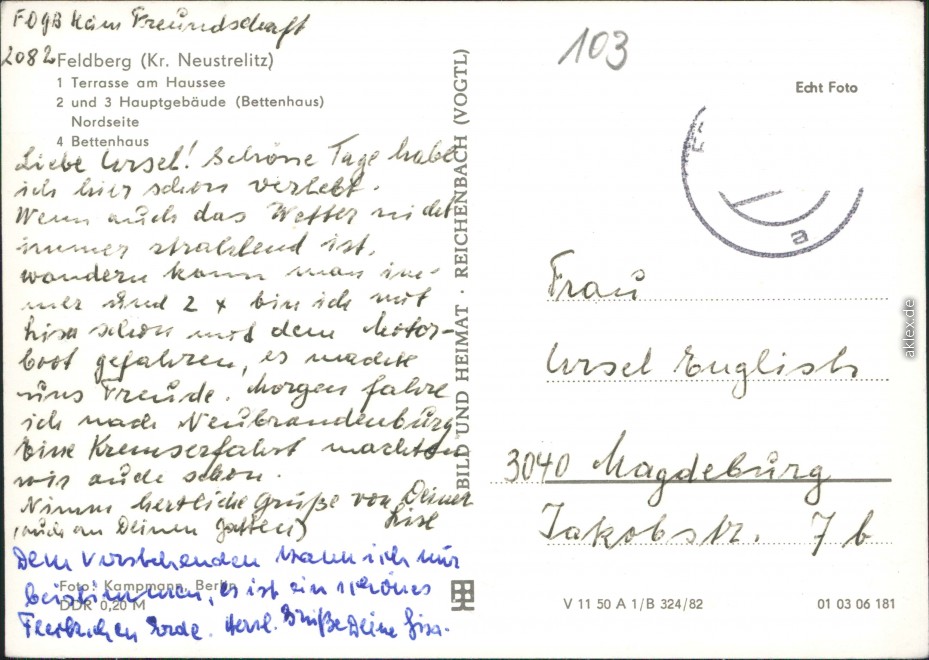 FDGB Heim Freundschaft
2082 Feldberg (Kr. Neustrelitz)
1 Terrasse am Haussee
2 und 3 Hauptgebäude (Bettenhaus)
Nordseite
4 Bettenhaus
Liebe Ursel! Schöne Tage habe
ich hier schon verlebt.
Wenn auch das Wetter nicht
immer strahlend ist,
wandern kann man im-
mer und 2 x bin ich mit
Lisa schon mit dem Motor-
boot gefahren, es machte
uns Freude. Morgen fahre
ich nach Neubrandenburg
Eine Kremserfahrt machten
wir auch schon.
Nimm herzliche Grüße von Deiner
(auch an Deinen Gatten) Lisl
Dem Vorstehenden kann ich nur
beistimmen, es ist ein schönes
Fleckchen Erde. Herzl. Grüße Deine Lisa.
Foto: Kampmann, Berlin
DDR 0,20 M
BILD UND HEIMAT · REICHENBACH (VOGTL)
103
Echt Foto
a
Frau
Ursel Englisch
3040 Magdeburg
Jakobstr. 7 b
V 11 50 A 1/B 324/82
01 03 06 181
aklex.de